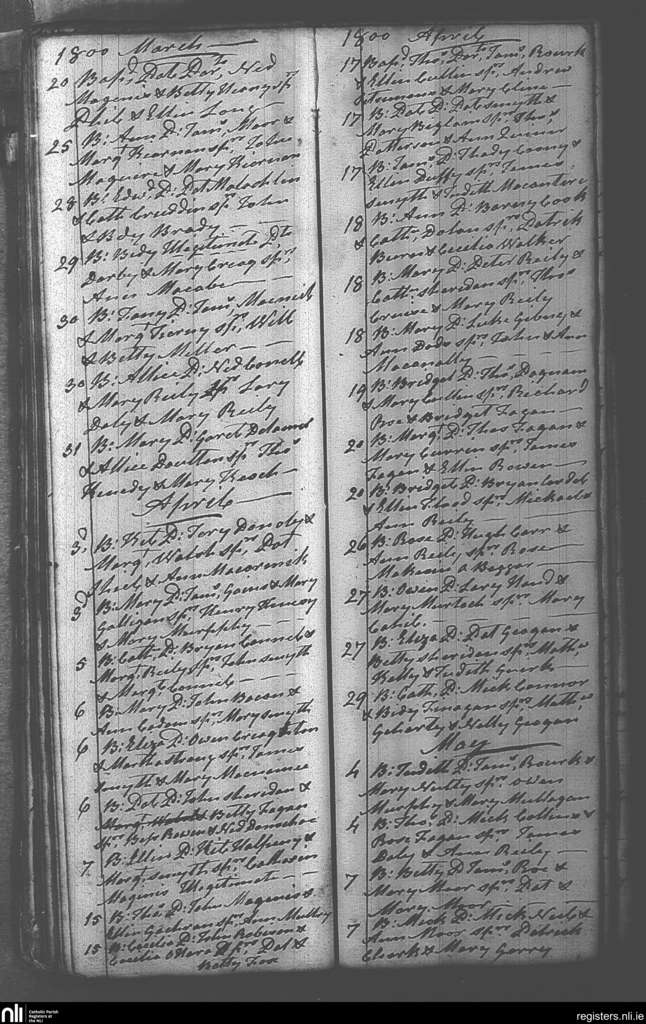 1800 March
20 Bap.d Pat Dor.tr Ned
Magenis & Betty Heany sp.rs
Phil & Ellin Long
25 B: Ann D: Jam.s Marr &
Marg.t Kiernan sp.rs John
Maguire & Mary Kiernan
28 B: Edw.d D: Pat Malachlin
& Cath Creddin sp.rs John
& Bidy Brady
29 B: Bidy Illegitimet D.tr
Darby & Mary Creag sp.rs
Ann Macabe
30 B: Fany D: Jam.s Macneil
& Marg.t Tierny sp.rs Will
& Betty Miller
30 B: Allice D: Ned Connell
& Mary Reily sp.rs Lary
Daly & Mary Reily
31 B: Mary D: Garet Delamer
& Allice Doutton sp.rs Tho.s
Kenedy & Mary Keoch
Aprile
3 B: Kit D: Tory Donoly &
Marg.t Walsh sp.rs Pat
Shiel & Ann Macormick
3 B: Mary D: Jam.s Gains & Mary
Galligan sp.rs Henry
& Mary Murpphy
5 B: Cath D: Bryan Connel &
Marg.t Reily sp.rs John Smyth
& Marg.t Connel
6 B: Mary D: John Bacon &
Ann sp.rs Mary Smyth
6 B: Eliza D: Owen
& Martha Strong sp.rs James
Smyth & Mary Macname
6 B: Pat D: John Sheridan &
Betty Fagan
sp.rs Rowen & Ned
7 B: Ellin D: Kit Halfpeny &
Marg.t Smyth sp.rs Catheren
Magenis Illegitimet
15 B: Tho.s D: John Magenis &
Ellin sp.rs Ann Mulloy
15 B: Cecelia D: John Roberson &
Cecelia O Hara sp.rs Pat &
Betty Fox
1800 Aprile
17 Bap.d Tho.s Dor.tr Jam.s Rourk
& Ellin Cullen sp.rs Andrew
& Mary Cline
17 B: Pat D: Pat Smyth &
Mary Beglan sp.rs Tho.s
Patterson & Ann
17 B: Jam.s D: Thady Coony &
Ellin Duffy sp.rs James
Smyth & Judeth Macantire
18 B: Ann D: Barney Cook
& Cath: Dolan sp.rs Patrick
Burn & Cecelia Walker
18 B: Mary D: Peter Reily &
Cath: Sheridan sp.rs Tho.s
Cruise & Mary Reily
18 B: Mary D: Luke Gibney &
Ann Dodo sp.rs John & Ann
Macanally
19 B: Bredget D: Tho.s Dagnam
& Mary Cullen sp.rs Richard
Roe & Bredget Fagan
20 B: Marg.t D: Thos Fagan &
Mary Curren sp.rs James
Fagan & Ellin Rowen
20 B: Bridget D: Bryan Cordel
& Ellen Flood sp.rs Mickael &
Ann Reely
26 B: Rose D: Hugh Carr &
Ann Reily sp.rs Rose
Makeon a Beggar
27 B: Owen D: Lary Hand &
Mary Murtoch sp.rs Mary
Cahil.
27 B: Eliza D: Pat Geagan &
Betty Sheridan sp.rs Math.w
Kelly & Judeth
29 B: Cath: D: Mick Connor
& Bidy Finagan sp.rs Math.w
Geharty & Nelly Geagan
May
4 B: Judeth D: Jam.s Rourk &
Mary Nulty sp.rs Owen
Murphy & Mary Mulligan
4 B: Tho.s D: Mich Collins &
Rose Fagan sp.rs James
Daly & Ann Reily
7 B: Betty D: Jam.s Roe &
Mary Moor sp.rs Pat &
Mary Moor
7 B: Mick D: Mick Neel &
Ann Moor sp.rs Patrick
Clark & Mary Gerry
nli Catholic Parish
Registers at
the NLI
registers.nli.ie